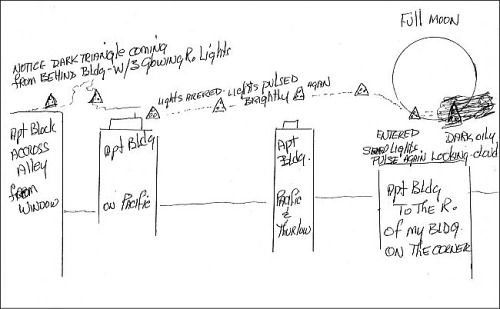 Full MOON
NOTICE DARK TRIANGLE COMING
from BEHIND Bldg - W/3 GlOWING R. Lights
lights PULSED
BRIGHTLY
AGAIN
Apt Block
ACCROSS
Alley
from
WINDOW
Apt Bldg
ON PACIFIC
Apt
Bldg.
PACIFIC
&
THURLOW
ENTERED
Lights
PULSE AGAIN
DARK oily
LOOKING cloud
Apt Bldg
TO THE R.
of my BLDG.
ON THE CORNER